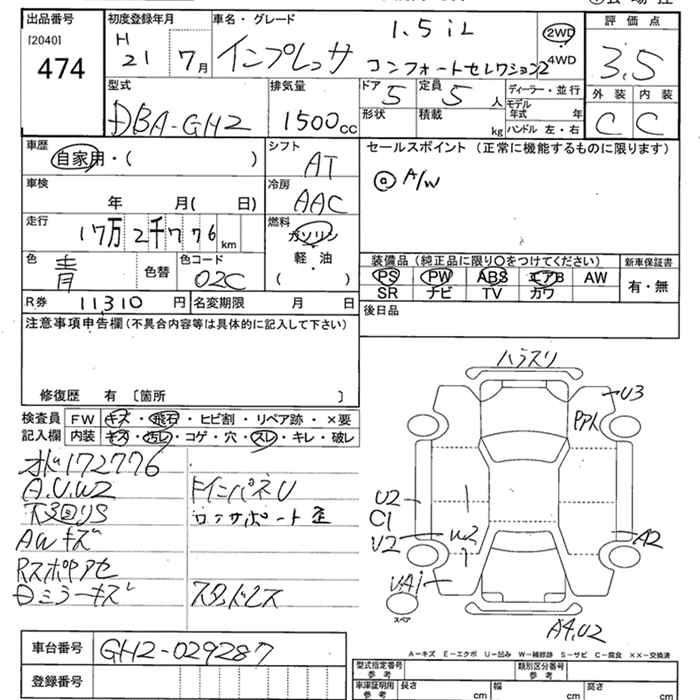 出品番号 初度登録年月 車名・グレード 評価点
[2040] H 1.5iL 2WD
474 21 7月 インプレッサ コンフォートセレクション2 4WD 3.5
型式 排気量 ドア 定員 ディーラー・並行 外装 内装
DBA-GH2 1500cc 5 5人 モデル年式 年 C C
形状 積載 kg ハンドル 左・右
車歴 シフト セールスポイント(正常に機能するものに限ります)
自家用・( ) AT
車検 冷房 A/W
年 月( 日) AAC
走行 燃料
17万2千776km ガソリン
色 色替 色コード 軽・油 装備品(純正品に限り○をつけてください) 新車保証書
青 02C ( ) PS PW ABS エアB AW 有・無
R券 11310円 名変期限 月 日 SR ナビ TV カワ
注意事項申告欄(不具合内容等は具体的に記入して下さい) 後日品
修復歴 有 〔箇所 〕
検査員 FW キズ・飛石・ヒビ割・リペア跡・×要
記入欄 内装 キズ・汚レ・コゲ・穴・スレ・キレ・破レ
172776
A.U.W2 トインパネU
AWキズ
ロッサポート歪
スタッドレス
ハラスリ
U3
U2
C1
V2
W2
A2
UA1
スペア
A4.U2
A-キズ E-エクボ U-凹み W-補修跡 S-サビ C-腐食 ××-交換済
車台番号 GH2-029287
登録番号
型式指定番号 参考 類別区分番号 参考
車庫証明用 参考 長さ cm 幅 cm 高さ cm